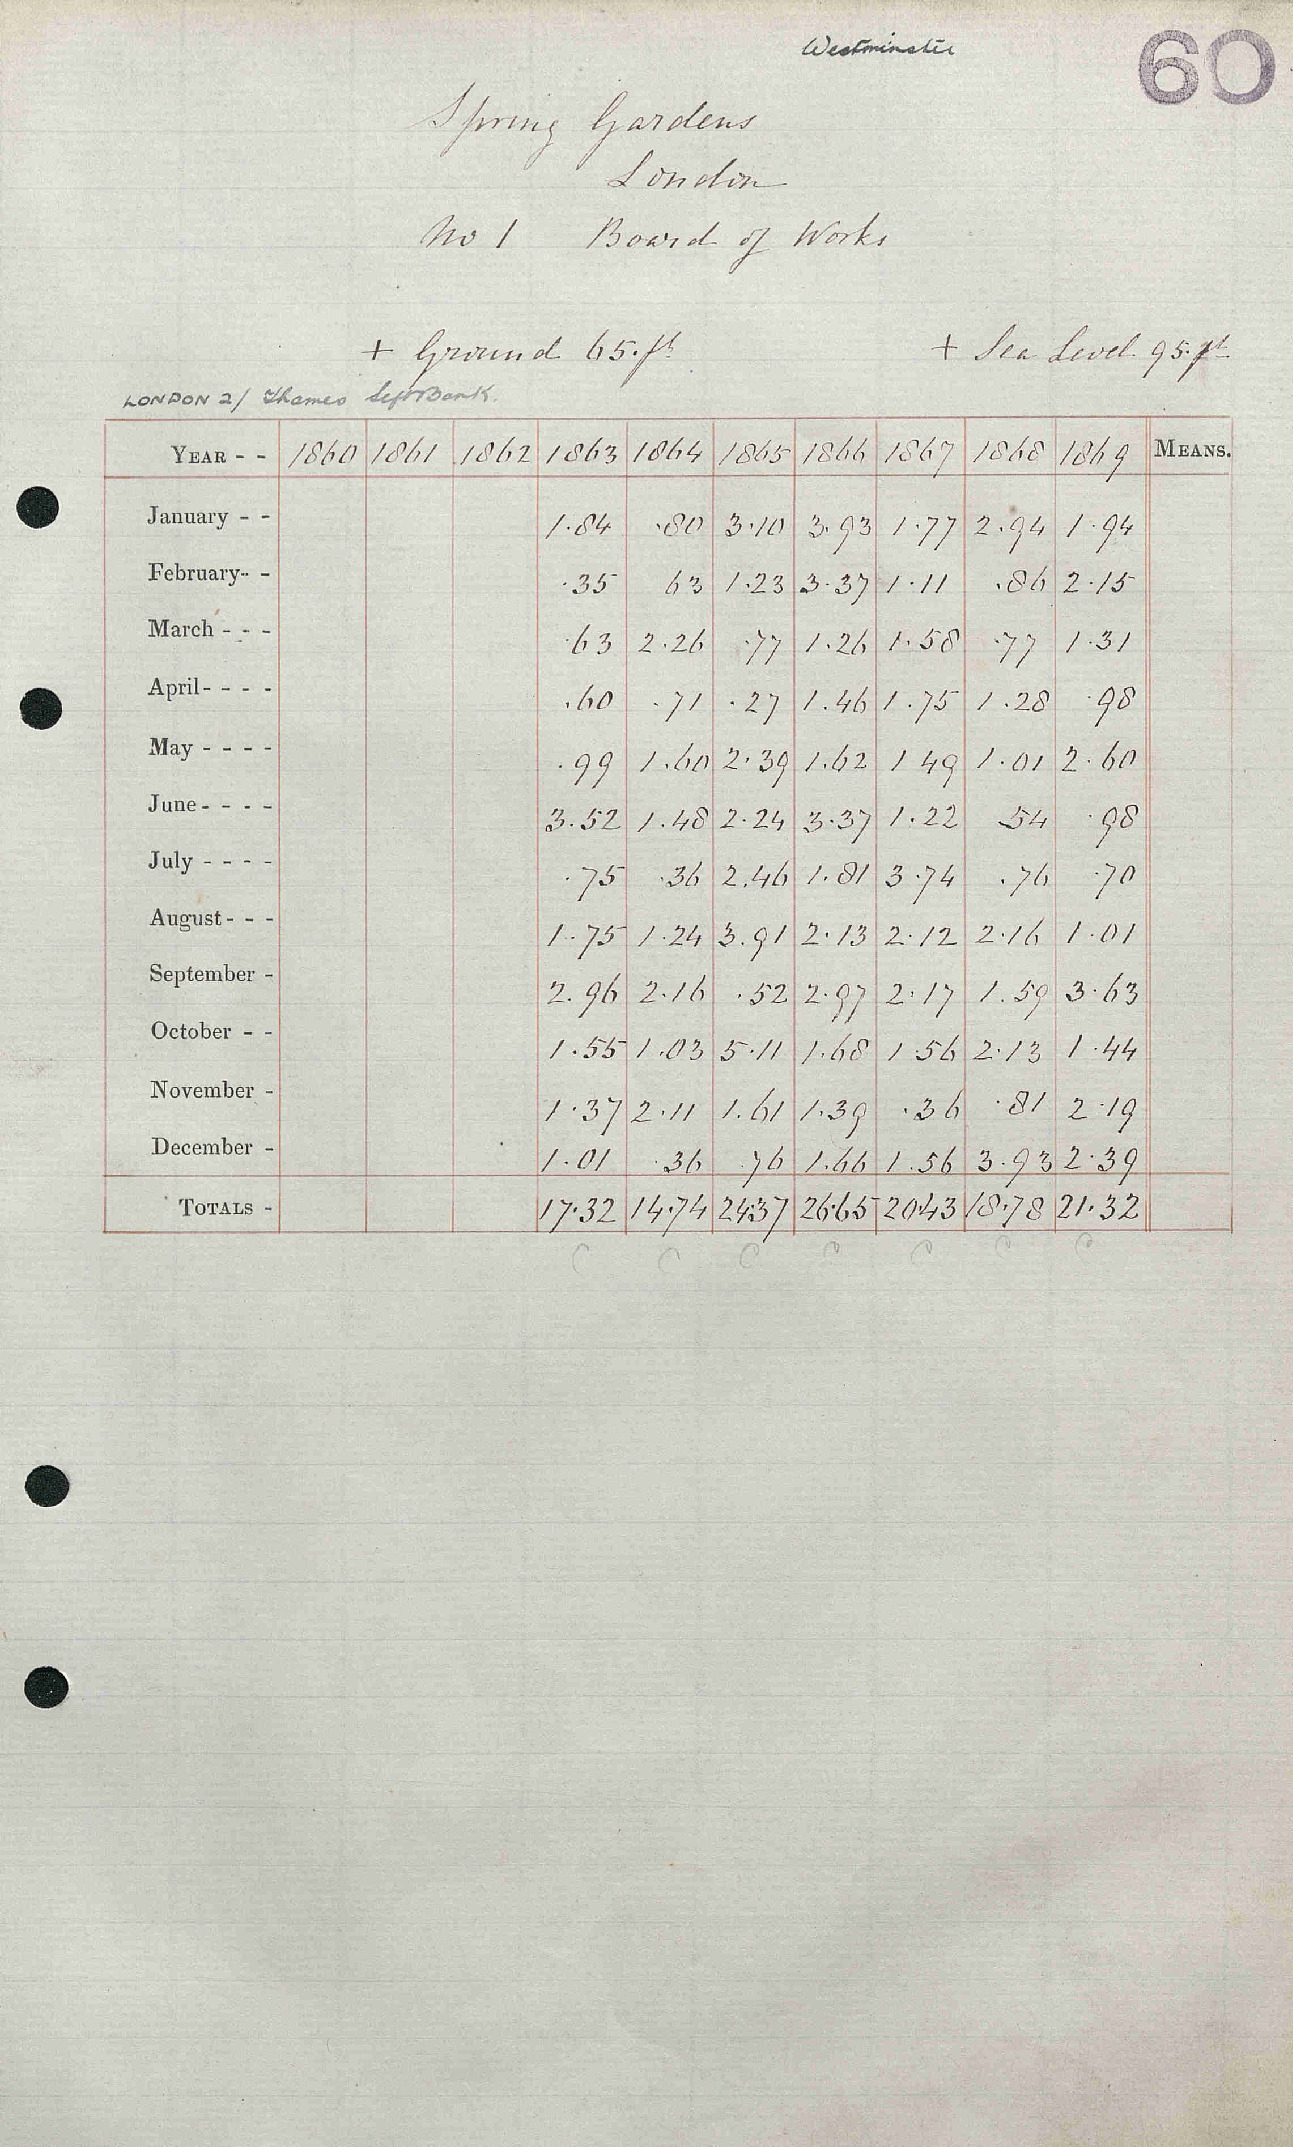 Westminster
60
Spring Gardens
London
No 1 Board of Works
+ Ground 65.ft + Sea Level 95.ft
LONDON 2/ Thames Left Bank.
YEAR - - 1860 1861 1862 1863 1864 1865 1866 1867 1868 1869 MEANS.
January - - 1.84 .80 3.10 3.93 1.77 2.94 1.94
February - - .35 63 1.23 3.37 1.11 .86 2.15
March - - - .63 2.26 .77 1.26 1.58 .77 1.31
April - - - - .60 .71 .27 1.46 1.75 1.28 .98
May - - - - .99 1.60 2.39 1.62 1 49 1.01 2.60
June - - - - 3.52 1.48 2.24 3.37 1.22 .54 .98
July - - - - .75 .36 2.46 1.81 3.74 .76 .70
August - - - 1.75 1.24 3.91 2.13 2.12 2.16 1.01
September - 2.96 2.16 .52 2.97 2.17 1.59 3.63
October - - 1.55 1.03 5.11 1.68 1 56 2.13 1.44
November - 1.37 2.11 1.61 1.39 .36 .81 2.19
December - 1.01 .36 .76 1.66 1.56 3.93 2.39
TOTALS - 17.32 14.74 24.37 26.65 20.43 18.78 21.32
C C C C C C C